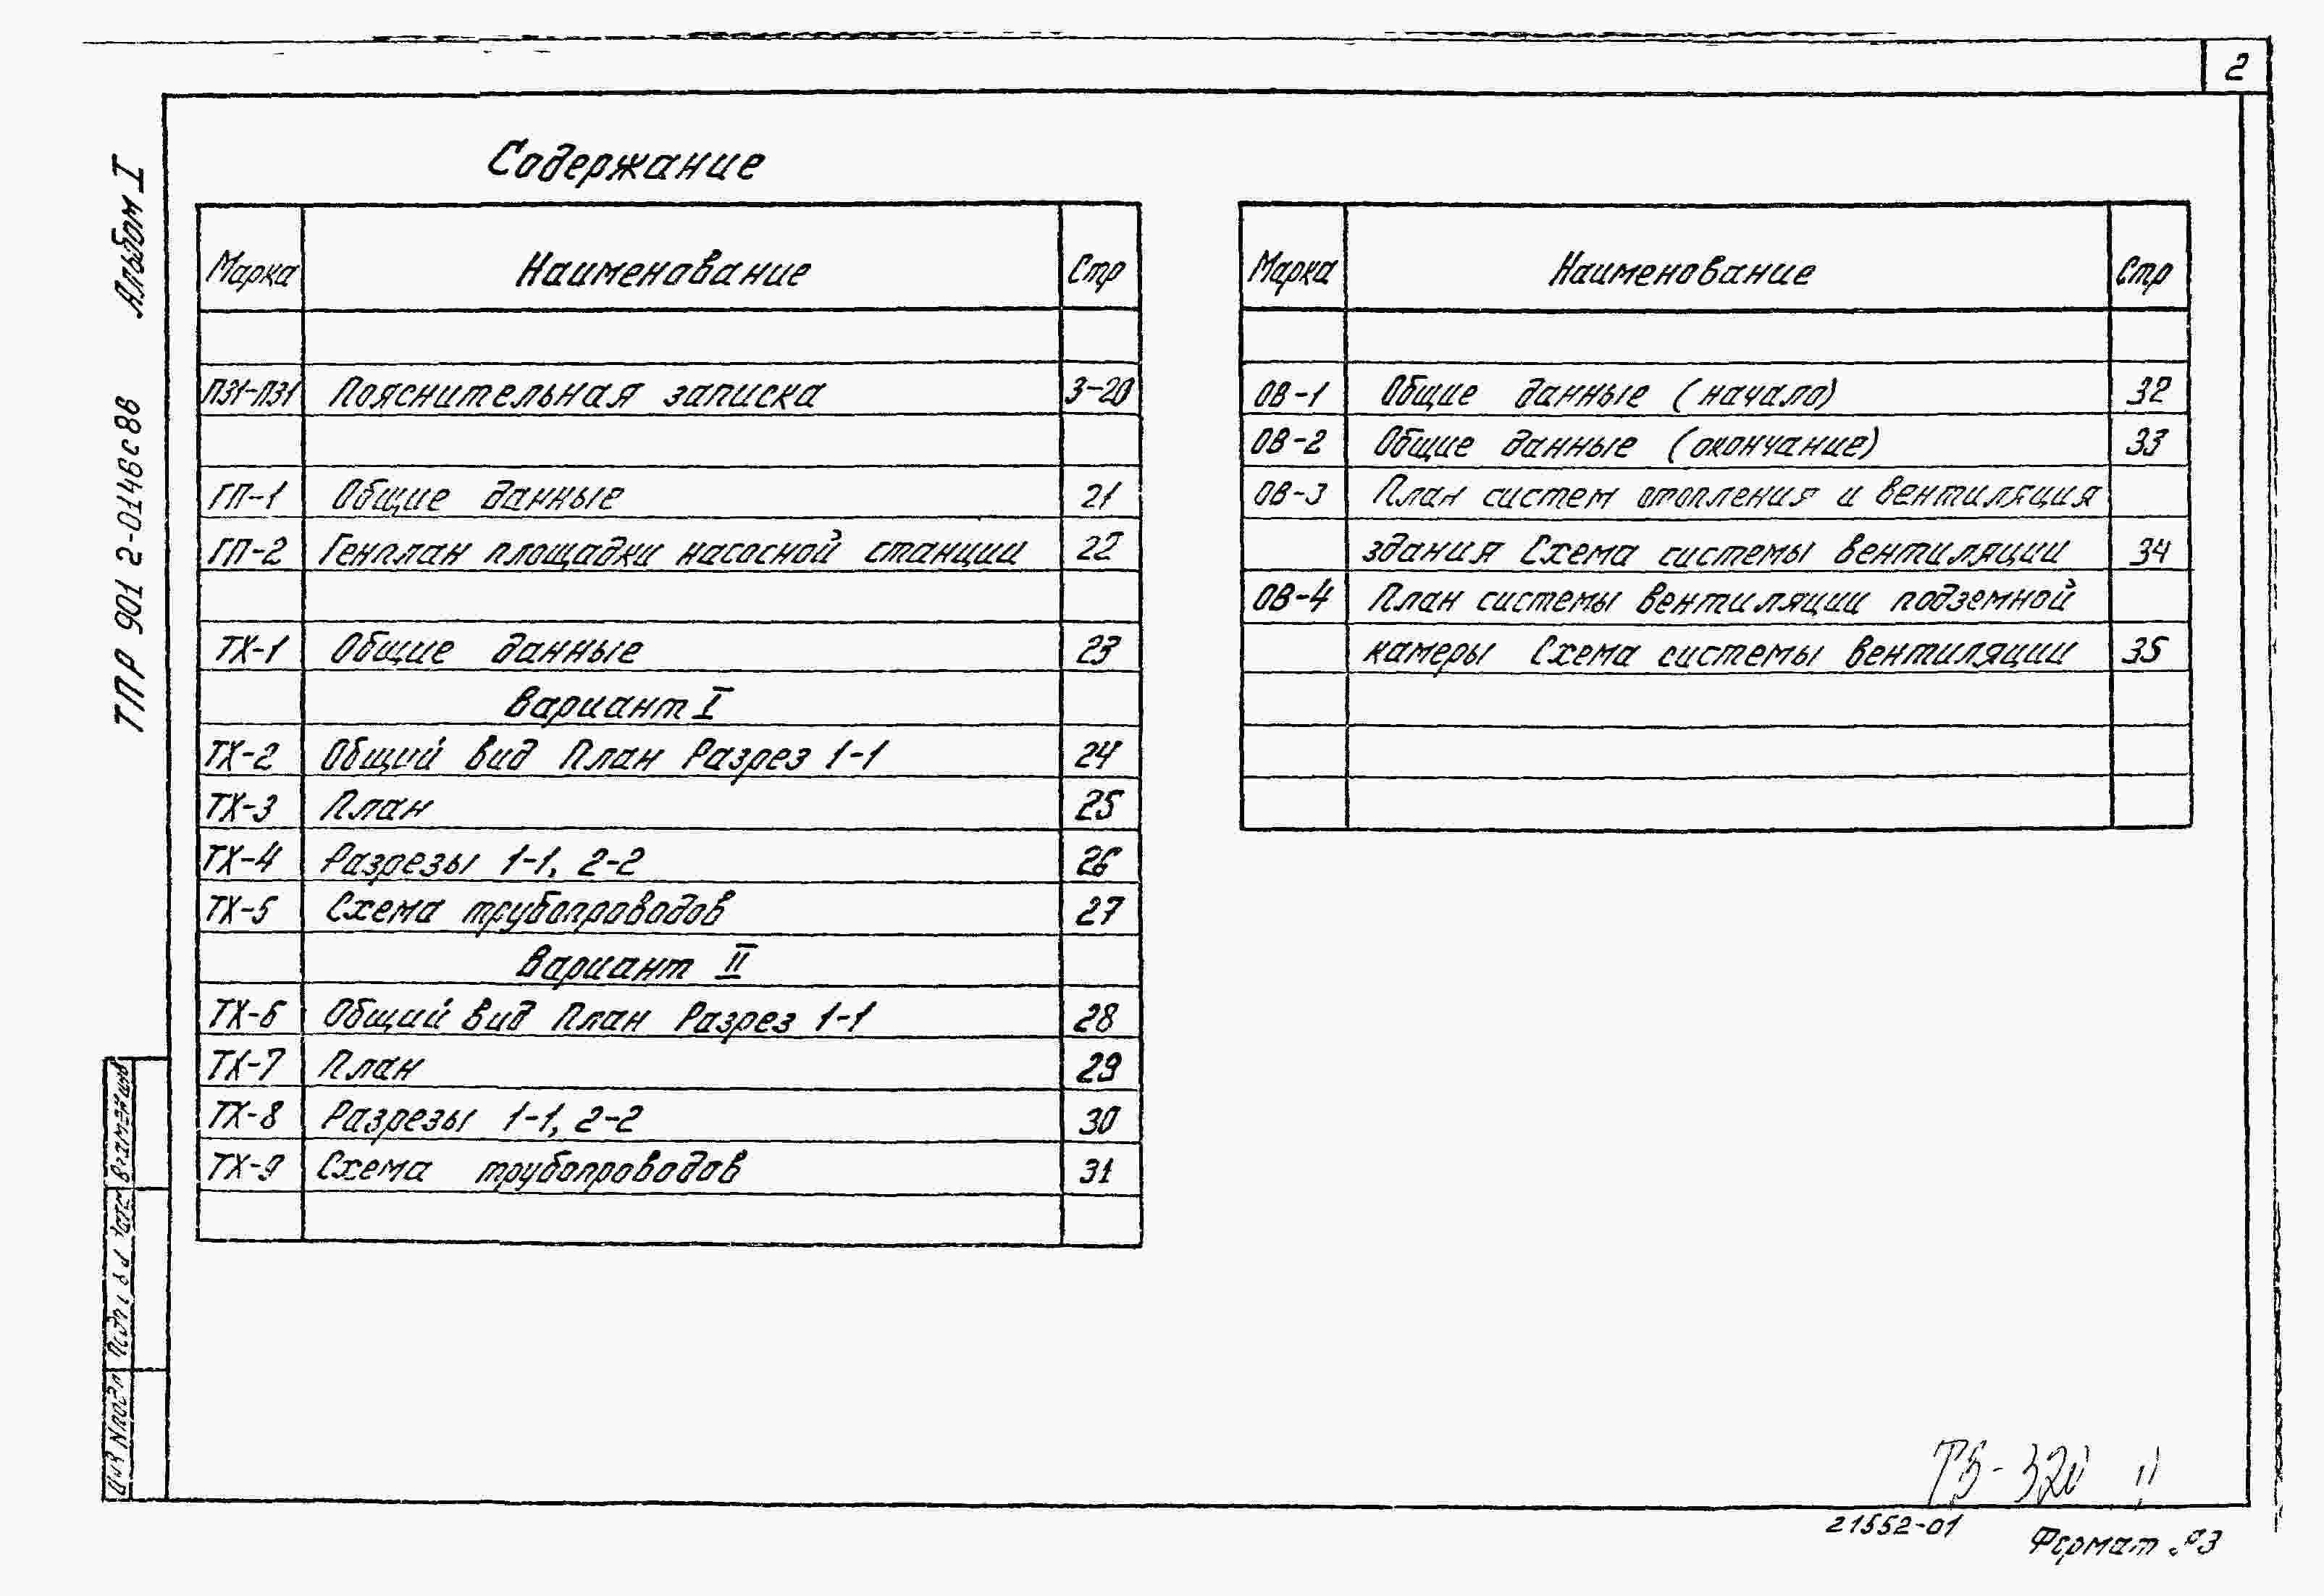 2
Альбом I
ТПР 901 2-0146с88
Содержание
Марка Наименование Стр
ПЗ1-ПЗ1 Пояснительная записка 3-20
ГП-1 Общие данные 21
ГП-2 Генплан площадки насосной станции 22
ТХ-1 Общие данные 23
Вариант I
ТХ-2 Общий вид План Разрез 1-1 24
ТХ-3 План 25
ТХ-4 Разрезы 1-1, 2-2 26
ТХ-5 Схема трубопроводов 27
Вариант II
ТХ-6 Общий вид План Разрез 1-1 28
ТХ-7 План 29
ТХ-8 Разрезы 1-1, 2-2 30
ТХ-9 Схема трубопроводов 31
Марка Наименование Стр
ОВ-1 Общие данные (начало) 32
ОВ-2 Общие данные (окончание) 33
ОВ-3 План систем отопления и вентиляция
здания Схема системы вентиляции 34
ОВ-4 План системы вентиляции подземной
камеры Схема системы вентиляции 35
21552-01
Формат